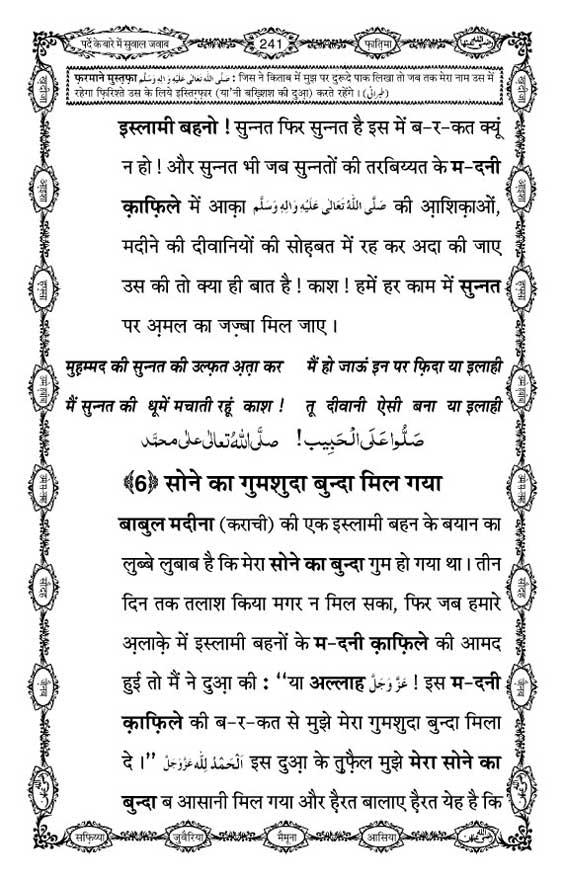 पर्दे के बारे में सुवाल जवाब
241
फ़ातिमा
फ़रमाने मुस्तफ़ा صَلَّى اللهُ تَعَالٰى عَلَيْهِ وَاٰلِهٖ وَسَلَّم : जिस ने किताब में मुझ पर दुरूदे पाक लिखा तो जब तक मेरा नाम उस में
रहेगा फ़िरिश्ते उस के लिये इस्तिग़्फ़ार (या'नी बख़्शिश की दुआ) करते रहेंगे। (طبرانی)
इस्लामी बहनो ! सुन्नत फिर सुन्नत है इस में ब-र-कत क्यूं
न हो ! और सुन्नत भी जब सुन्नतों की तरबिय्यत के म-दनी
क़ाफ़िले में आक़ा صَلَّى اللهُ تَعَالٰى عَلَيْهِ وَاٰلِهٖ وَسَلَّم की आ़शिक़ाओं,
मदीने की दीवानियों की सोह़बत में रह कर अदा की जाए
उस की तो क्या ही बात है ! काश ! हमें हर काम में सुन्नत
पर अ़मल का जज़्बा मिल जाए ।
मुह़म्मद की सुन्नत की उल्फ़त अ़त़ा कर मैं हो जाऊं इन पर फ़िदा या इलाही
मैं सुन्नत की धूमें मचाती रहूं काश ! तू दीवानी ऐसी बना या इलाही
صَلُّوا عَلَى الْحَبِيب! صلَّى اللهُ تعالى على محمَّد
﴾6﴿ सोने का गुमशुदा बुन्दा मिल गया
बाबुल मदीना (कराची) की एक इस्लामी बहन के बयान का
लुब्बे लुबाब है कि मेरा सोने का बुन्दा गुम हो गया था । तीन
दिन तक तलाश किया मगर न मिल सका, फिर जब हमारे
अ़लाक़े में इस्लामी बहनों के म-दनी क़ाफ़िले की आमद
हुई तो मैं ने दुआ़ की : “या अल्लाह عَزَّ وَجَلَّ ! इस म-दनी
क़ाफ़िले की ब-र-कत से मुझे मेरा गुमशुदा बुन्दा मिला
दे ।” اَلْحَمْدُ لِلّٰه عَزَّوَجَلَّ इस दुआ़ के तु़फ़ैल मुझे मेरा सोने का
बुन्दा ब आसानी मिल गया और ह़ैरत बालाए ह़ैरत येह है कि
सफ़िय्या
जुवैरिया
मैमूना
आसिया